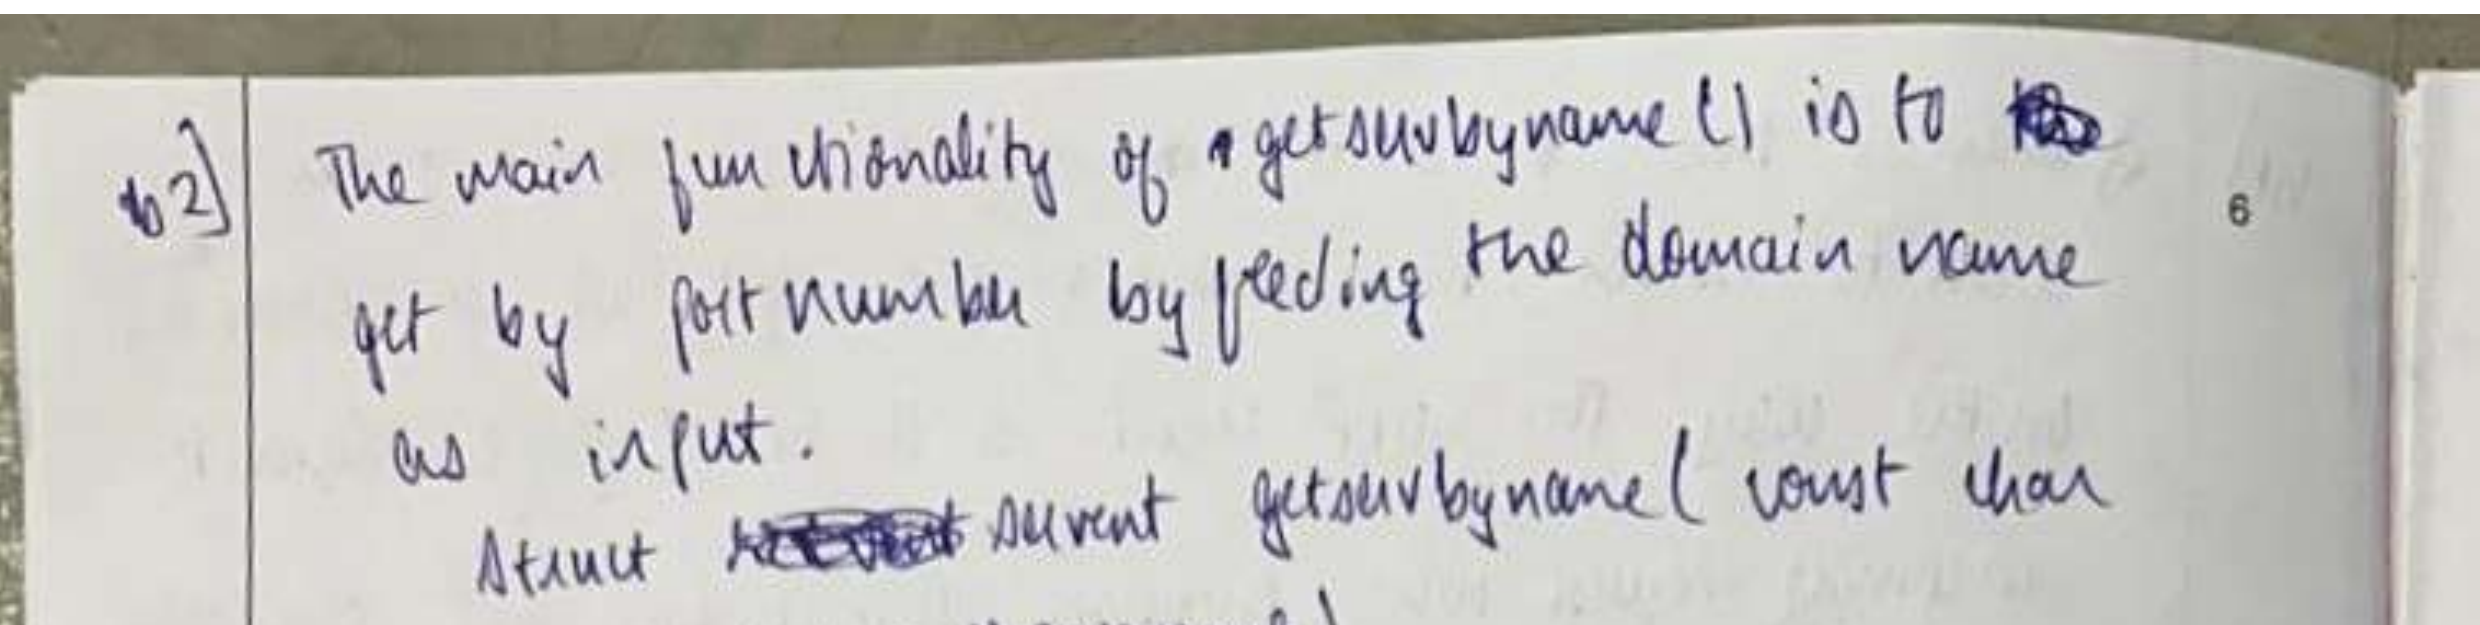 b2]
The main functionality of getservbyname() is to
6
get by port number by feeding the domain name
as input.
struct servent getservbyname( const char